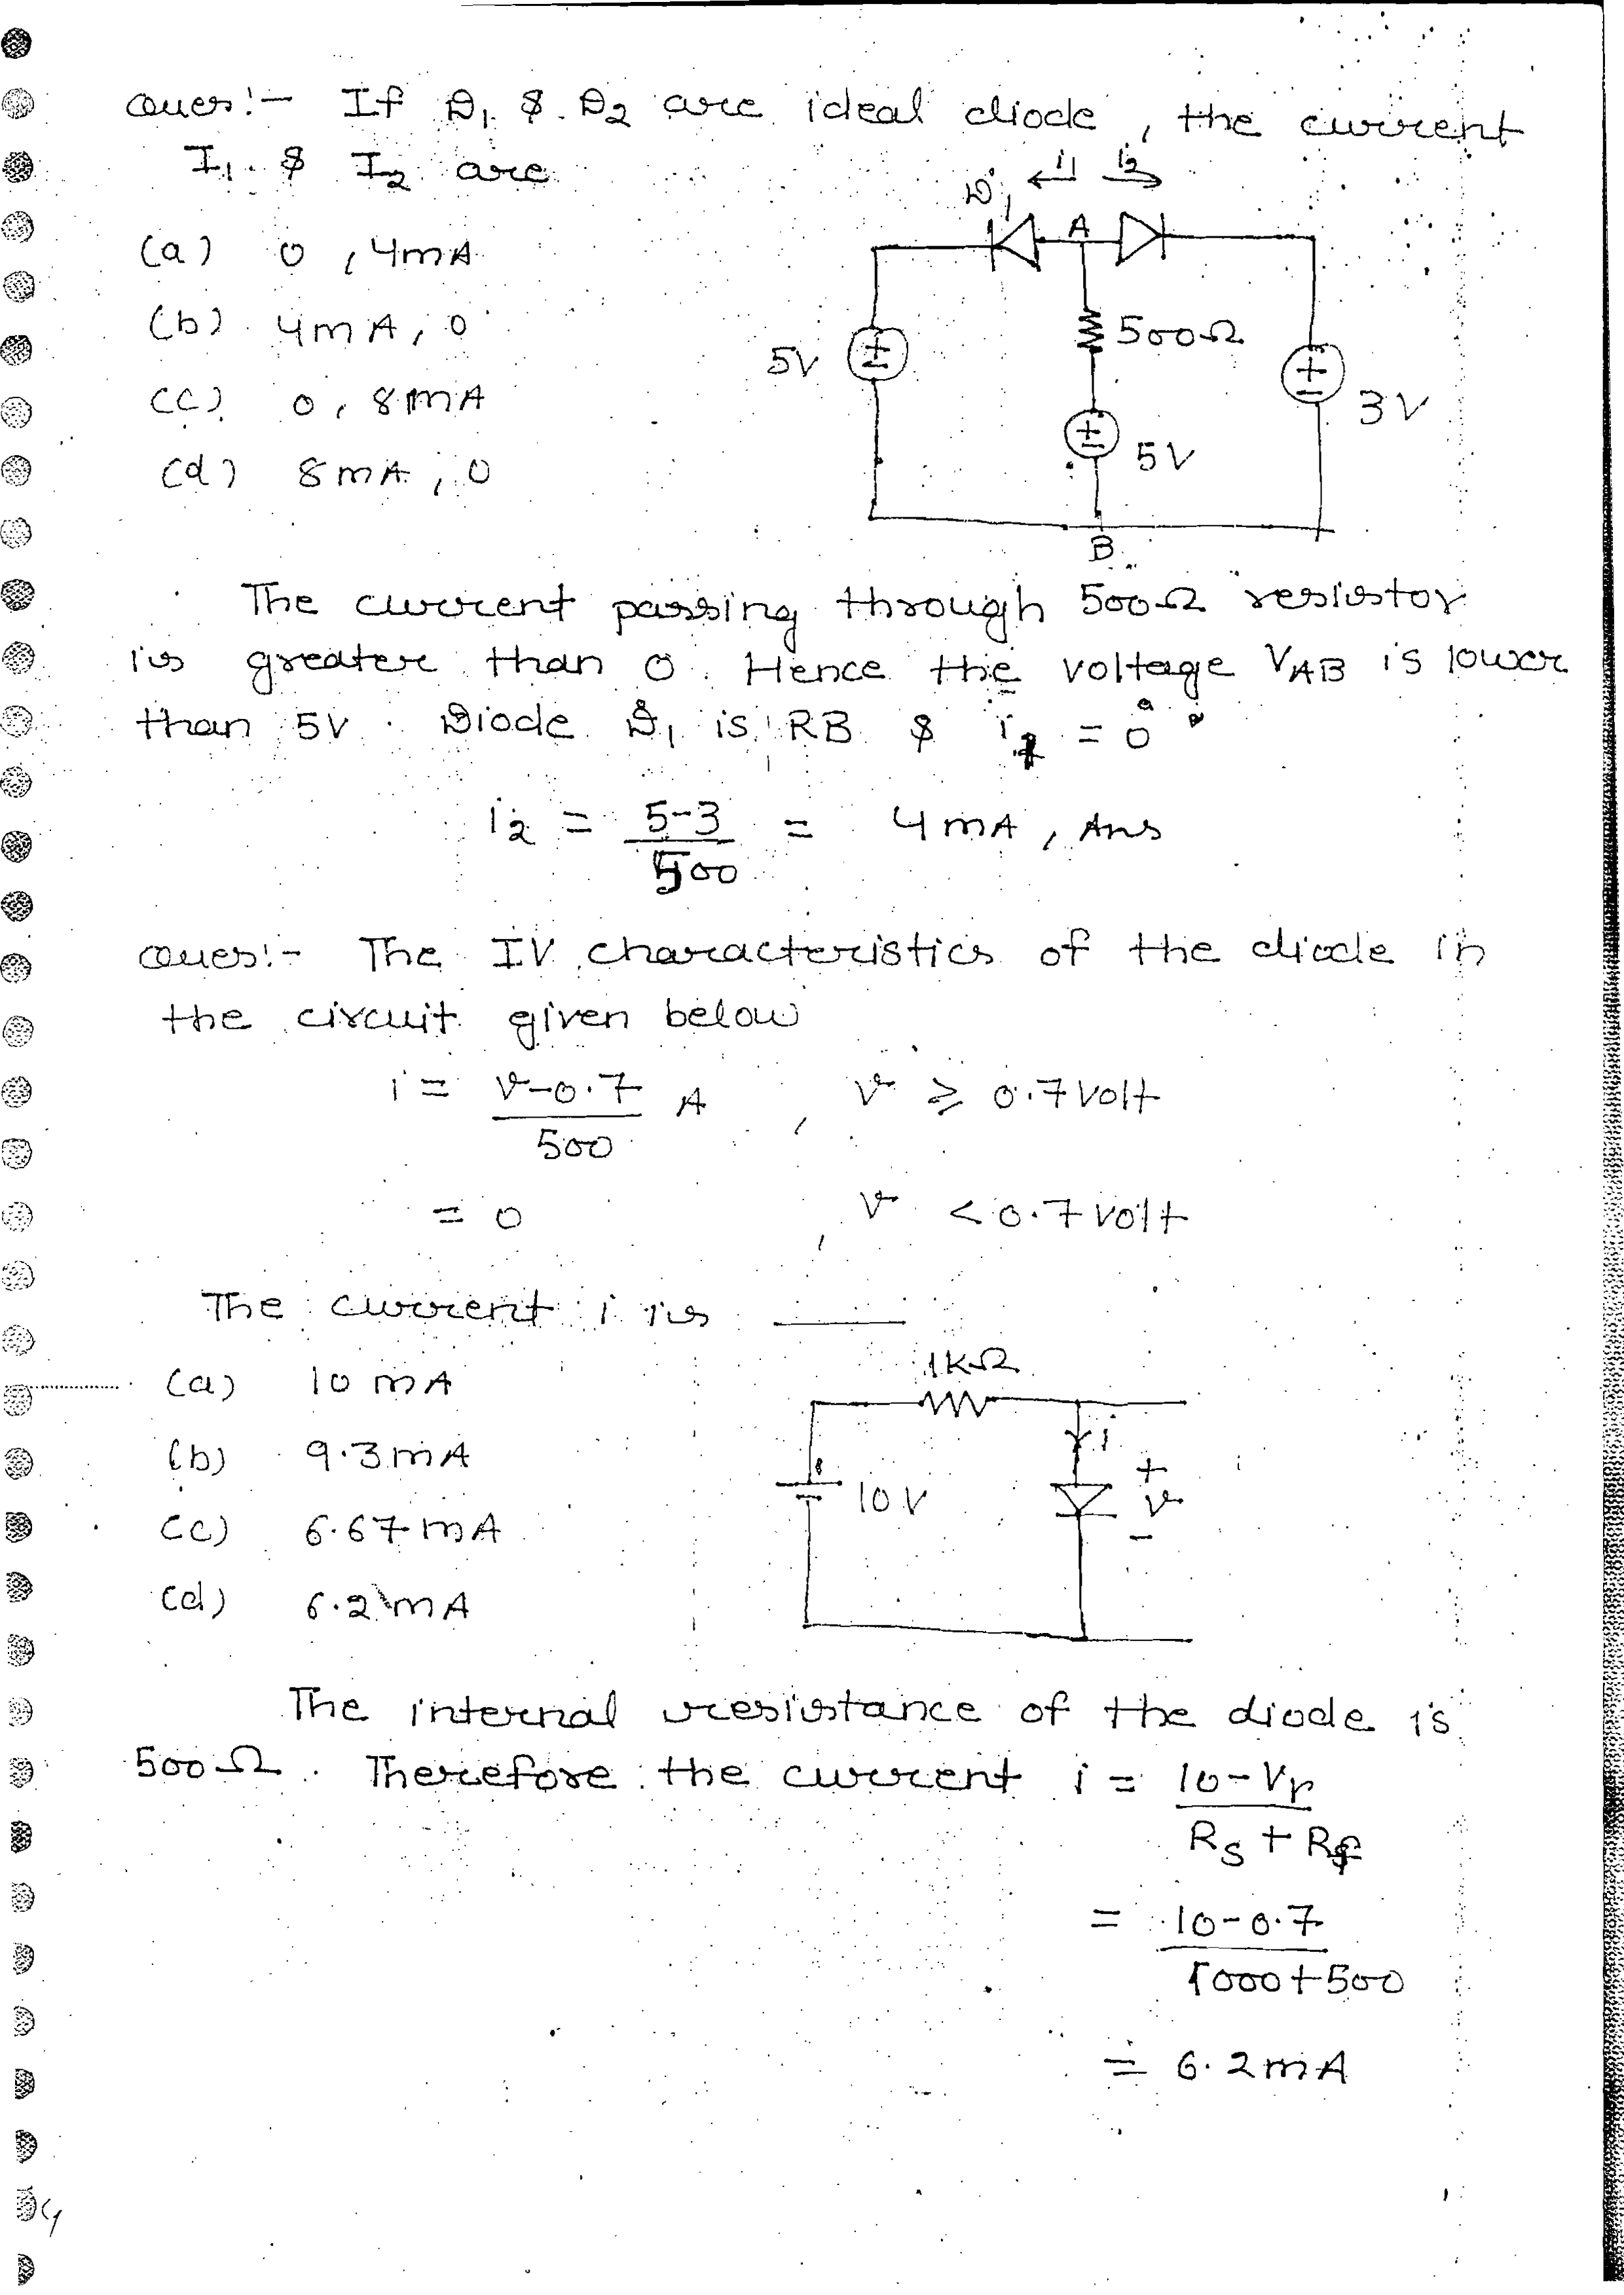 Ques:- If D1 $ D2 are ideal diode, the current
I1 $ I2 are
i1 i2
D1
A
(a) 0, 4mA
(b) 4mA, 0
(c) 0, 8mA
(d) 8mA, 0
5V
500Ω
3V
5V
B
The current passing through 500Ω resistor
is greater than 0. Hence the voltage VAB is lower
than 5V. Diode D1 is RB $ i1 = 0
i2 = 5-3/500 = 4mA, Ans
Ques:- The IV characteristics of the diode in
the circuit given below
i = v-0.7/500 A , v ≥ 0.7 Volt
= 0 , v < 0.7 volt
The current i is ____
1KΩ
(a) 10 mA
(b) 9.3mA
(c) 6.67mA
(d) 6.2mA
i
10V
+
v
-
The internal resistance of the diode is
500Ω. Therefore the current i = 10-Vr/Rs + Rf
= 10-0.7/1000+500
= 6.2mA